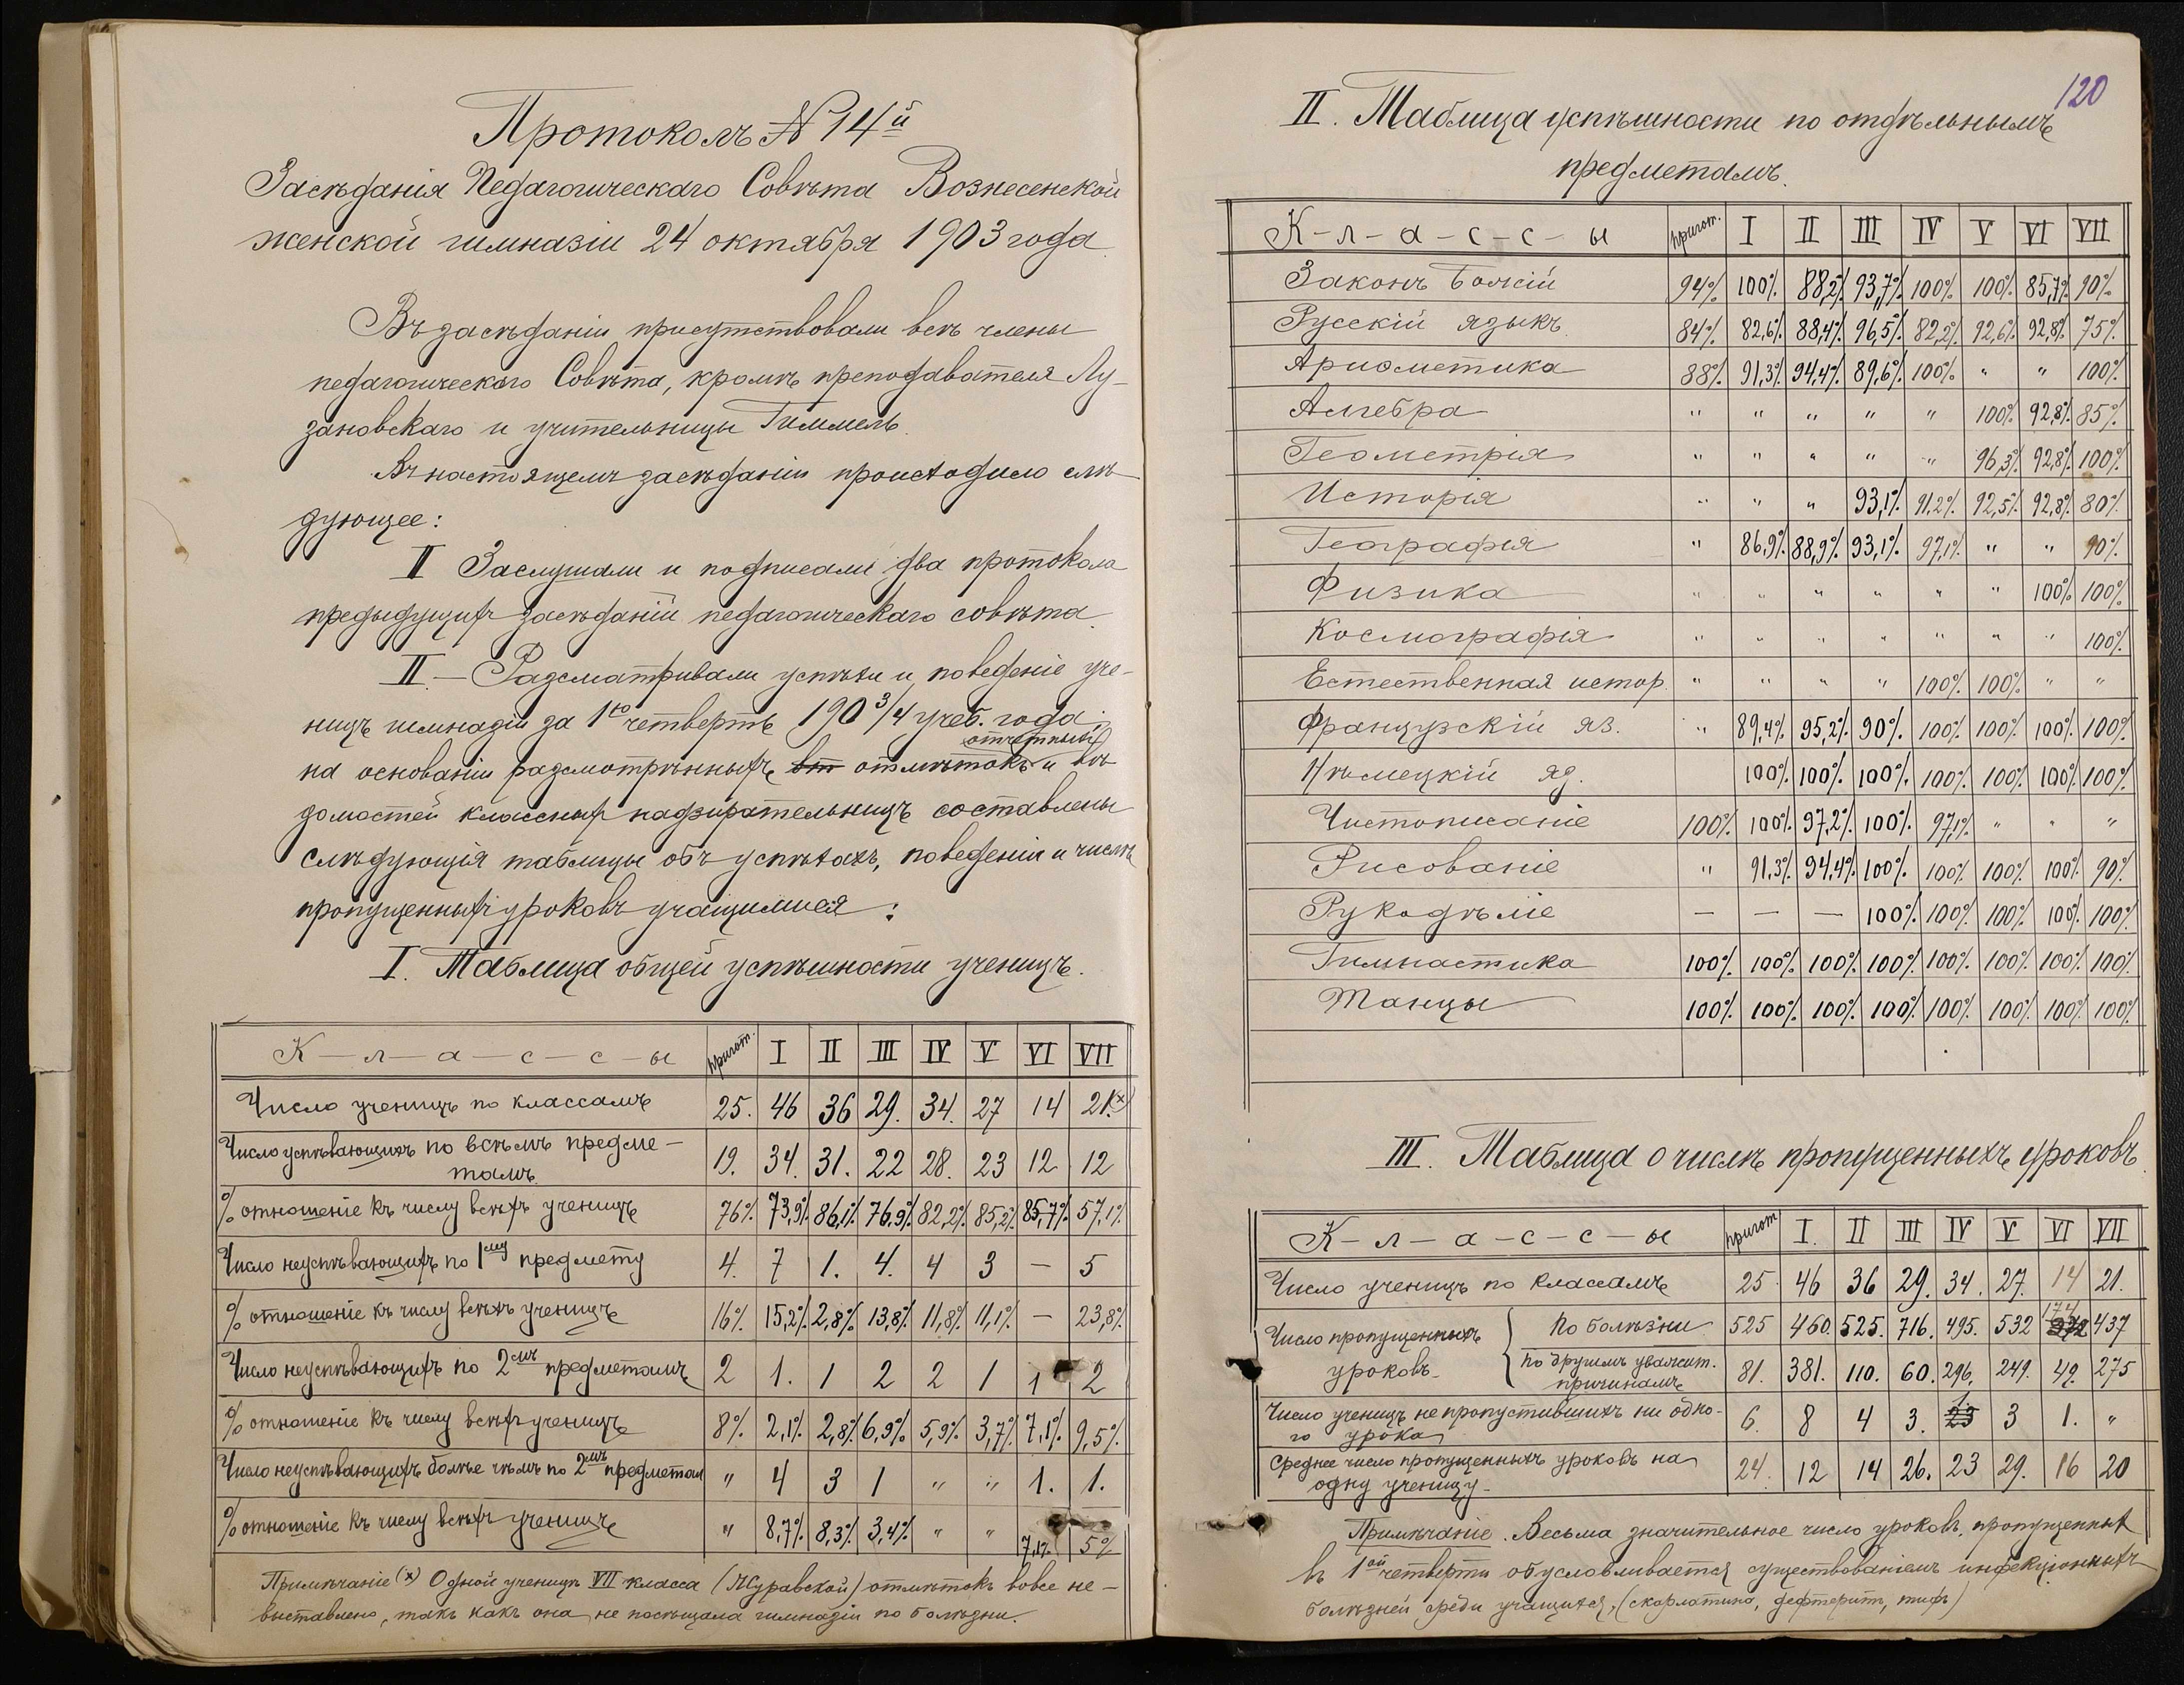 Протоколъ № 14й
Засѣданія Педагогическаго Совѣта Вознесенской
женской гимназіи 24 октября 1903 года.
Въ засѣданіи присутствовали всѣ члены
педагогическаго Совѣта, кромѣ преподавателя Лу-
зановскаго и учительницы Гиммель.
Въ настоящемъ засѣданіи происходило слѣ-
дующее:
II Заслушали и подписали два протокола
предыдущихъ засѣданій педагогическаго совѣта.
II. — Разсматривали успѣхи и поведеніе уче-
ницъ гимназіи за 1ю четверть 190 3/4 учеб. года;
отчетныхъ
на основаніи разсмотрѣнныхъ вт отмѣтокъ и вѣ-
домостей классныхъ надзирательницъ составлены
слѣдующія таблицы объ успѣхахъ, поведеніи и числѣ
пропущенныхъ уроковъ учащимися:
I. Таблица общей успѣшности ученицъ.
К – л – а – с – с – ы пригот. I II III IV V VI VII
Число ученицъ по классамъ 25. 46 36 29. 34. 27 14 21.х)
Число успѣвающихъ по всѣмъ предме-
тамъ. 19. 34. 31. 22 28. 23 12 12
% отношеніе къ числу всѣхъ ученицъ 76% 73,9% 86,1% 76,9% 82,2% 85,2% 85,7% 57,1%
Число неуспѣвающихъ по 1му предмету 4. 7 1. 4. 4 3 — 5
% отношеніе къ числу всѣхъ ученицъ 16% 15,2% 2,8% 13,8% 11,8% 11,1% — 23,8%
Число неуспѣвающихъ по 2мъ предметамъ 2 1. 1 2 2 1 1 2
% отношеніе къ числу всѣхъ ученицъ 8% 2,1% 2,8% 6,9% 5,9% 3,7% 7,1% 9,5%
Число неуспѣвающихъ болѣе чѣмъ по 2мъ предметам " 4 3 1 " " 1. 1.
% отношеніе къ числу всѣхъ ученицъ " 8,7% 8,3% 3,4% " " 7,1% 5%
Примѣчаніе (х) Одной ученицѣ VII класса (Журавской) отмѣтокъ вовсе не –
выставлено, такъ какъ она не посѣщала гимназіи по болѣзни.
120
II. Таблица успѣшности по отдѣльнымъ
предметамъ.
К – л – а – с – с – ы пригот. I II III IV V VI VII
Законъ Божій 94% 100% 88,2% 93,7% 100% 100% 85,7% 90%
Русскій языкъ. 84% 82,6% 88,4% 96,5% 82,2% 92,6% 92,8% 75%
Ариѳметика 88% 91,3% 94,4% 89,6% 100% " " 100%
Алгебра " " " " " 100% 92,8% 85%
Геометрія " " " " " 96,3% 92,8% 100%
Исторія " " " 93,1% 91,2% 92,5% 92,8% 80%
Географія " 86,9% 88,9% 93,1% 97,1% " " 90%
Физика " " " " " " 100% 100%
Космографія " " " " " " " 100%
Естественная истор. " " " " 100% 100% " "
Французскій яз. " 89,4% 95,2% 90% 100% 100% 100% 100%
Нѣмецкій яз. 100% 100% 100% 100% 100% 100% 100%
Чистописаніе 100% 100% 97,2% 100% 97,1% " " "
Рисованіе " 91,3% 94,4% 100% 100% 100% 100% 90%
Рукодѣліе — — — 100% 100% 100% 100% 100%
Гимнастика 100% 100% 100% 100% 100% 100% 100% 100%
Танцы 100% 100% 100% 100% 100% 100% 100% 100%
III. Таблица о числѣ пропущенныхъ уроковъ.
К – л – а – с – с – ы пригот. I. II III IV V VI VII
Число ученицъ по классамъ 25 46 36 29. 34. 27. 14 21.
Число пропущенныхъ по болѣзни 525 460. 525. 716. 495. 532 174 437
уроковъ. по другимъ уважит.
причинамъ 81. 381. 110. 60. 296. 249. 49. 275
Число ученицъ не пропустившихъ ни одно-
го урока 6. 8 4 3. 23 3 1. "
Среднее число пропущенныхъ уроковъ на
одну ученицу 24. 12 14 26. 23 29. 16 20
Примѣчаніе. Весьма значительное число уроковъ, пропущенныхъ
въ 1ой четверти обусловливается существованіемъ инфекціонныхъ
болѣзней среди учащихся, (скарлатина, дефтеритъ, тифъ)